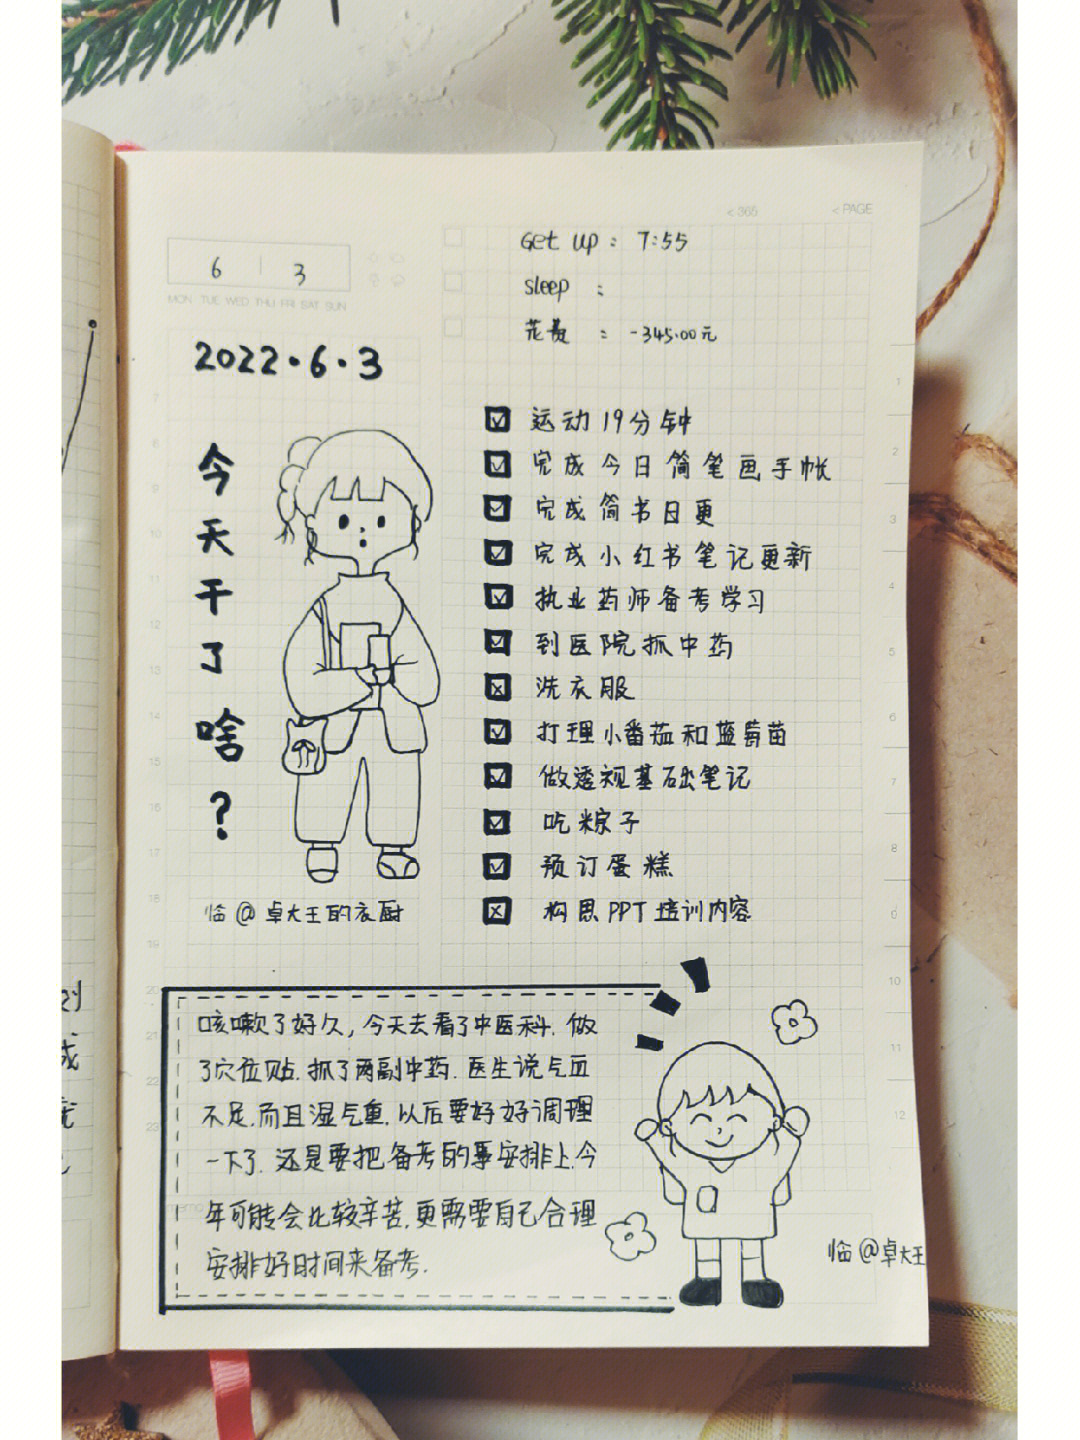 < 365
< PAGE
6 3
MON TUE WED THU FRI SAT SUN
Get up : 7:55
sleep :
花费 : -345.00元
2022·6·3
今天干了啥?
运动19分钟
完成今日简笔画手帐
完成简书日更
完成小红书笔记更新
执业药师备考学习
到医院抓中药
洗衣服
打理小番茄和蓝莓苗
做透视基础笔记
吃粽子
预订蛋糕
构思PPT培训内容
临@卓大王的衣厨
咳嗽了好久,今天去看了中医科.做
了穴位贴.抓了两副中药.医生说气血
不足.而且湿气重.以后要好好调理
一下了.还是要把备考的事安排上.今
年可能会比较辛苦.更需要自己合理
安排好时间来备考.
临@卓大王